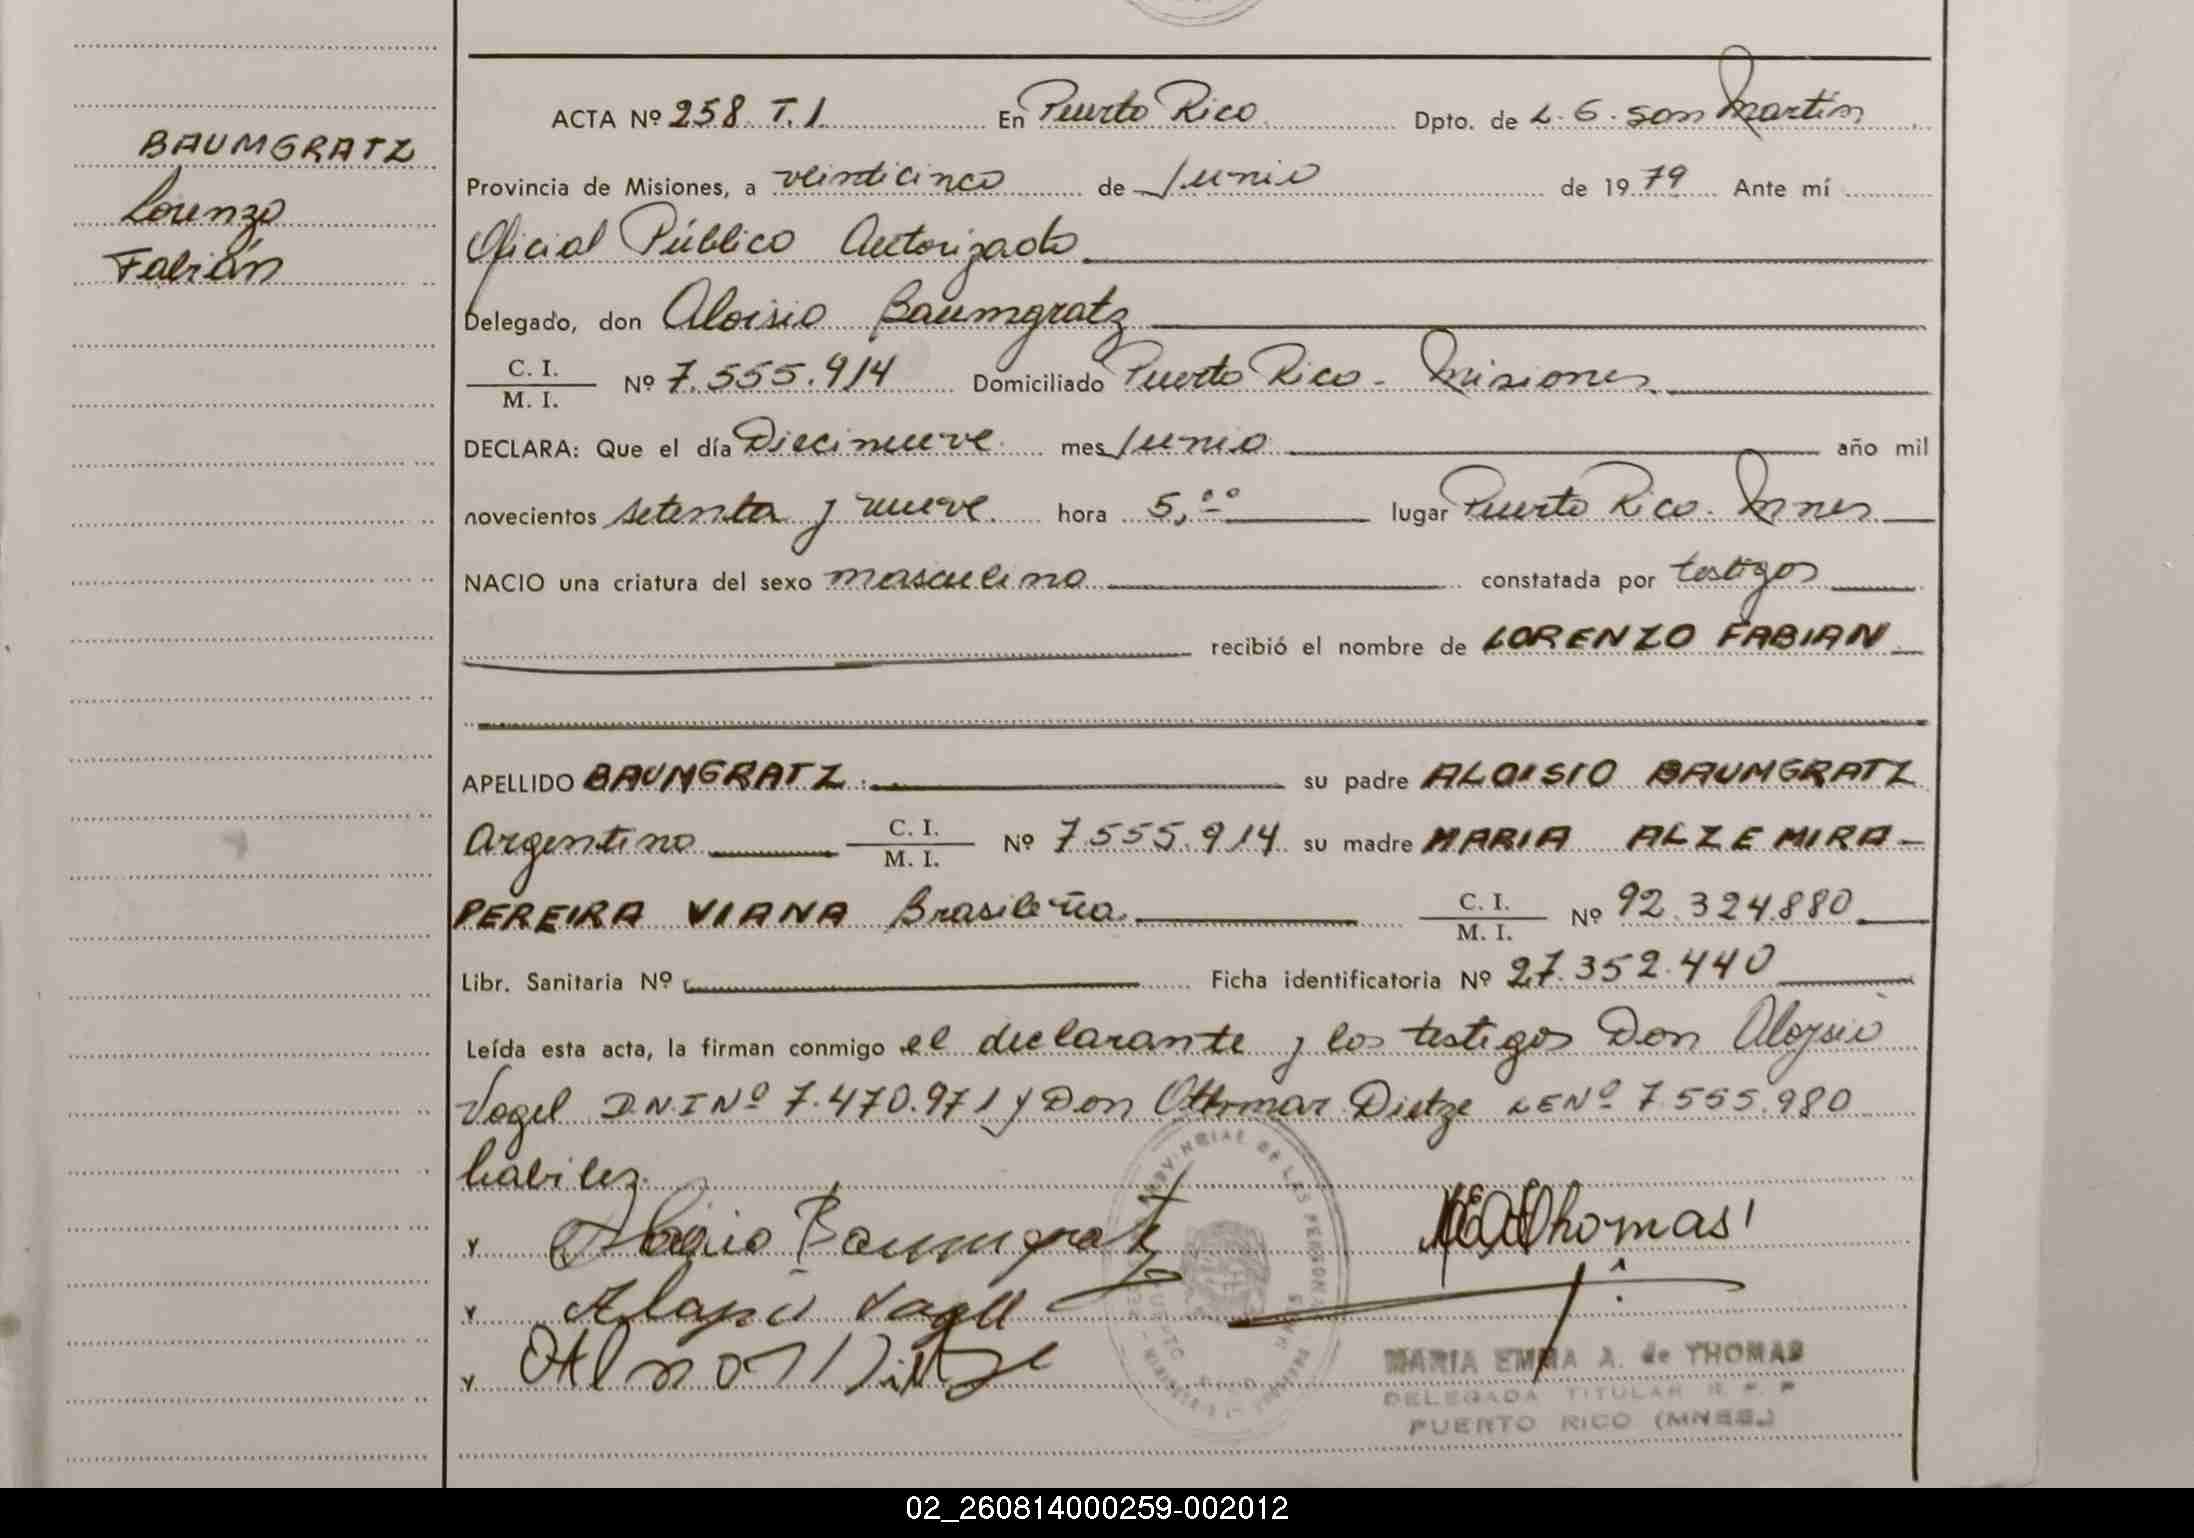 BAUMGRATZ
Lorenzo
Fabián
ACTA Nº 258 T. 1. En Puerto Rico Dpto. de L. G. San Martín
Provincia de Misiones, a veinticinco de Junio de 1979 Ante mí
Oficial Público Autorizado
Delegado, don Aloisio Baumgratz
C. I.
M. I. Nº 7.555.914 Domiciliado Puerto Rico - Misiones
DECLARA: Que el día Diecinueve mes Junio año mil
novecientos setenta y nueve hora 5,00 lugar Puerto Rico. Mnes
NACIO una criatura del sexo masculino constatada por testigos
recibió el nombre de LORENZO FABIAN
APELLIDO BAUMGRATZ su padre ALOISIO BAUMGRATZ
Argentino C. I. M. I. Nº 7.555.914 su madre MARIA ALZEMIRA -
PEREIRA VIANA Brasileña. C. I. M. I. Nº 92.324.880
Libr. Sanitaria Nº Ficha identificatoria Nº 27.352.440
Leída esta acta, la firman conmigo el declarante y los testigos Don Aloysio
Vogel DNI Nº 7.470.971 y Don Othmar Dietze LE Nº 7.555.980
habiles.
Aloisio Baumgratz
MEA Thomas
MARIA EMMA A. de THOMAS
DELEGADA TITULAR R. P. P
PUERTO RICO (MNES.)
02_260814000259-002012